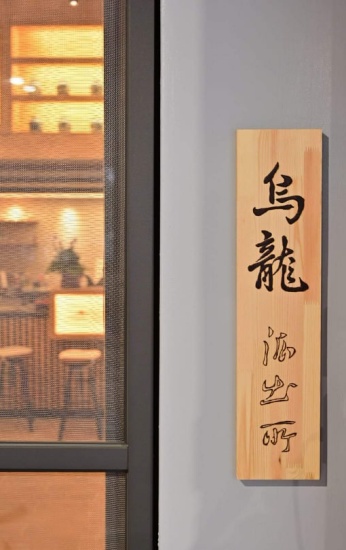 烏龍派出所